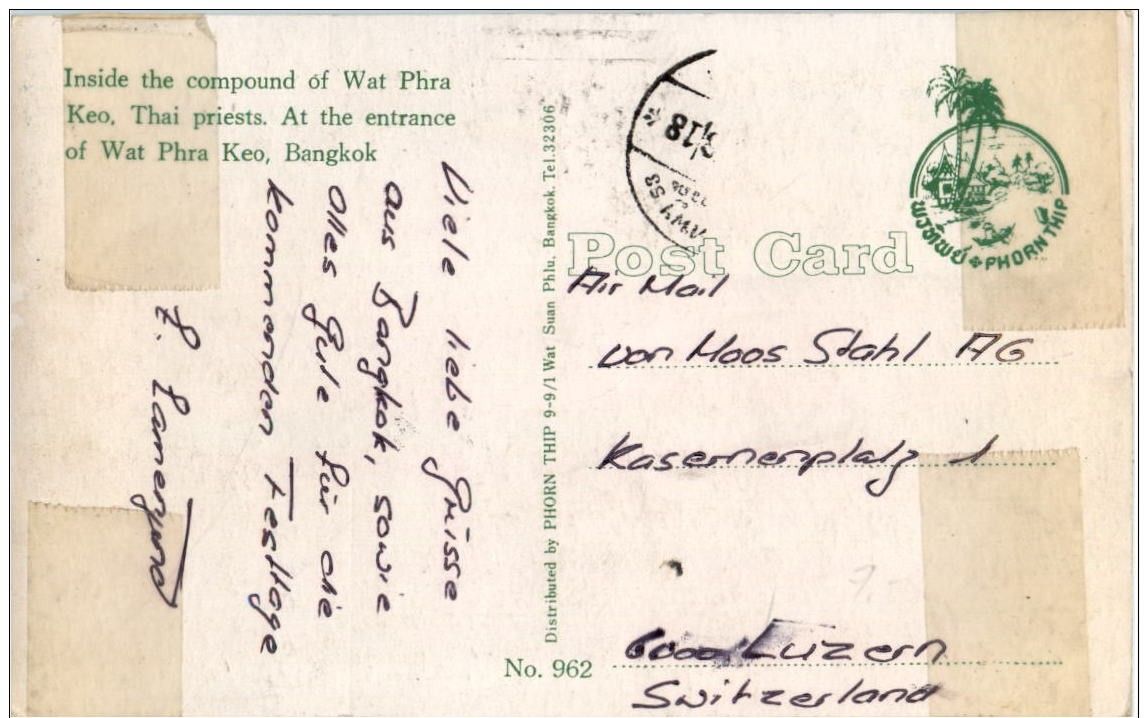 Inside the compound of Wat Phra
Keo, Thai priests. At the entrance
of Wat Phra Keo, Bangkok
Viele liebe Grüsse
aus Bangkok, sowie
alles Gute für die
kommenden Festtage
Distributed by PHORN THIP 9-9/1 Wat Suan Phlu, Bangkok. Tel.32306
พรทิพย์ PHORN THIP
Post Card
Air Mail
von Moos Stahl AG
Kasernenplatz 1
6000 Luzern
Switzerland
No. 962